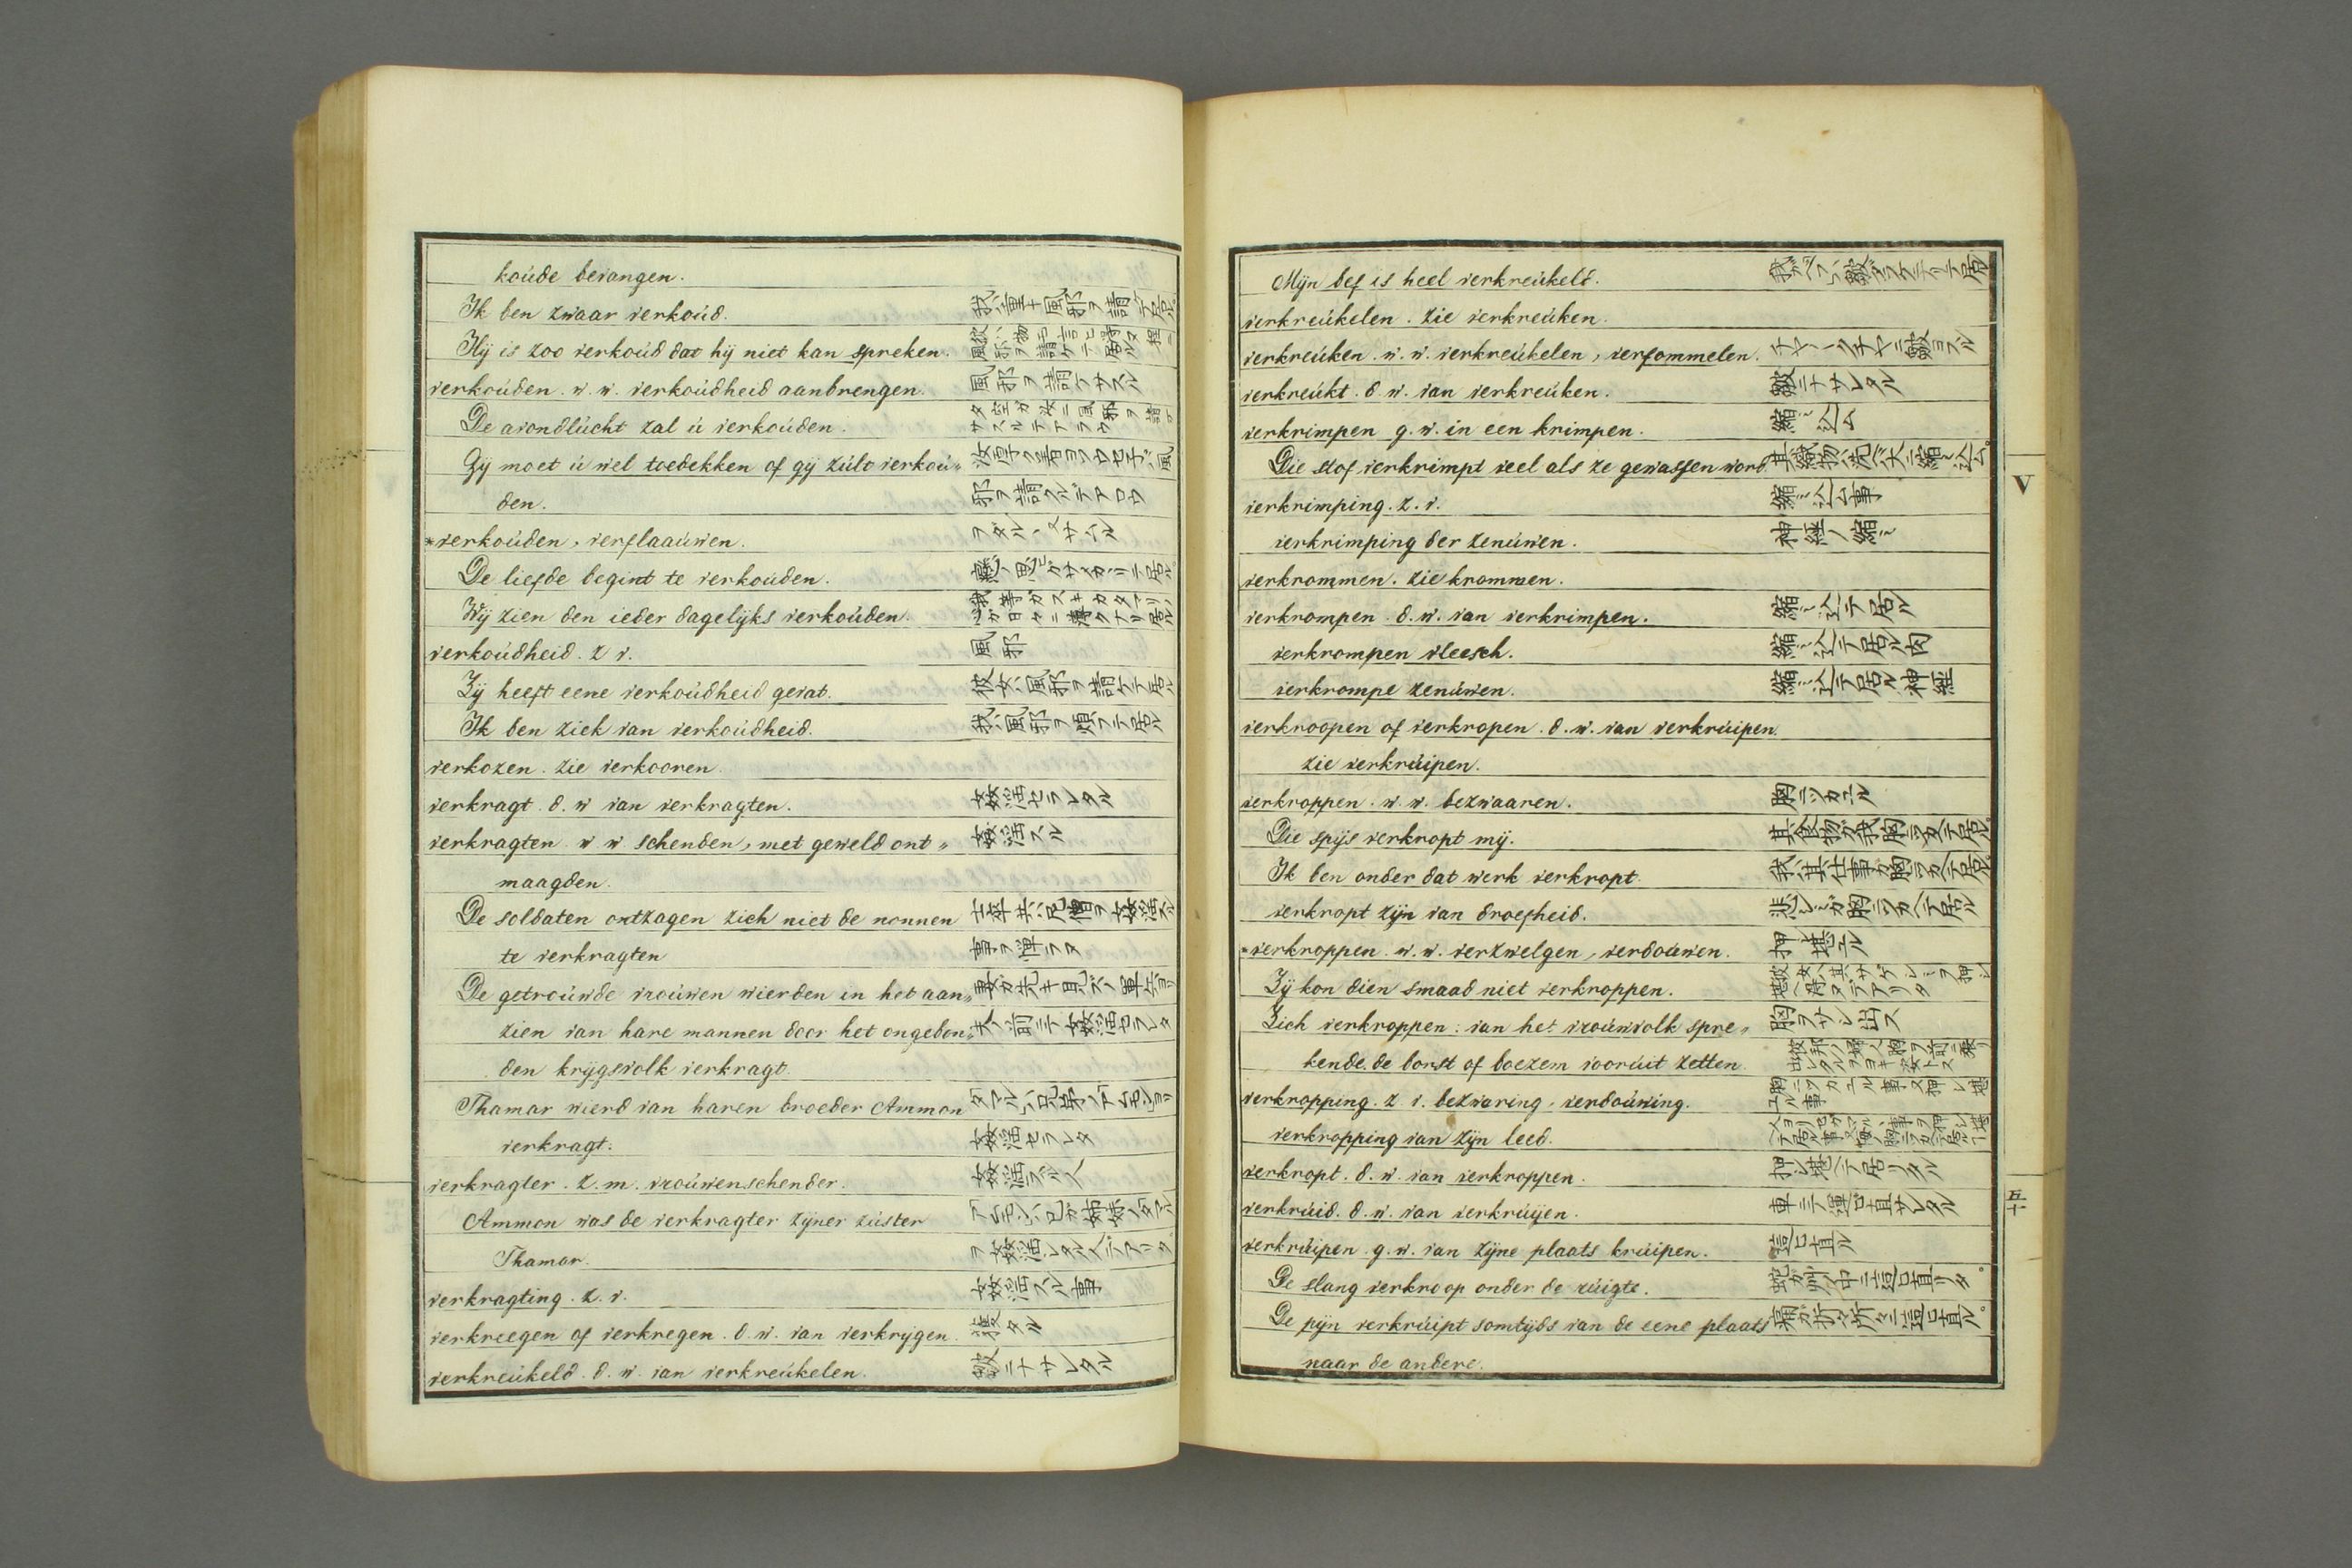 koúde bevangen.
Ik ben zwaar verkoúd. 我ハ重キ風邪ヲ請ケテ居ル
Hij is zoo verkoúd dat hij niet kan spreken.
verkoúden. w. w. verkoúdheid aanbrengen. 風邪ヲ請ケサスル
De avondlúcht zal ú verkoúden.
Gij moet ú wel toedekken of gij zúlt verkoú〃
den. 邪ヲ請クルデアロウ
*verkoúden, verflaaúwen.
De liefde begint te verkoúden.
Wij zien den ieder dagelijks verkoúden.
verkoúdheid. z. v. 風邪
Zij heeft eene verkoúdheid gevat. 彼女ハ風邪ヲ請ケテ居ル
Ik ben ziek van verkoúdheid. 我ハ風邪ヲ煩フテ居ル
verkozen. zie verkooren.
verkragt. d. w van verkragten. 姦淫セラレタル
verkragten w w schenden, met geweld ont〃 姦淫スル
maagden.
De soldaten ontzagen zich niet de nonnen 士卒共ハ尼僧ヲ姦淫スル
te verkragten 事ヲ憚ラヌ
De getroúwde vroúwen wierden in het aan〃
zien van hare mannen door het ongebon〃 夫ノ前ニテ姦淫セラレタ
den krijgsvolk verkragt.
Thamar wierd van haren broeder Ammon タマルハ兄弟ノアムモンヨリ
verkragt. 姦淫セラレタ
verkragter. z. m. vroúwenschender. 姦淫スル人
Ammon was de verkragter zijner zúster アムモンハ己ガ姉妹ノタマル
Thamar. ヲ姦淫シタル人デアリタ
verkragting. z. v. 姦淫スル事
verkreegen of verkregen. d. w. van verkrijgen. 獲タル
verkreúkeld. d. w. van verkreúkelen. 皺ニナサレタル
Mijn bef is heel verkreúkeld.
verkreúkelen. zie verkreúken.
verkreúken. w. w. verkreúkelen, verfommelen.
verkreúkt. d w. van verkreúken. 皺ニナサレタル
verkrimpen g. w. in een krimpen. 縮ミ込ム
Die stof verkrimpt veel als ze gewassen word 其織物ハ洗ヘバ大ニ縮ミ込ム。
verkrimping. z. v. 縮ミ込ム事
verkrimping der zenúwen. 神經ノ縮ミ
verkrommen. zie krommen.
verkrompen. d. w. van verkrimpen. 縮ミ込テ居ル
verkrompen vleesch. 縮ミ込テ居ル肉
verkrompe zenúwen. 縮ミ込テ居ル神經
verkroopen of verkropen. d. w. van verkrúipen.
zie verkrúipen.
verkroppen. w. w. bezwaaren. 胸ニツカエル
Die spijs verkropt mij. 其食物ガ我胸ニツカヘテ居ル。
Ik ben onder dat werk verkropt. 我ハ其仕事ガ胸ニツカヘテ居ル。
verkropt zijn van droefheid. 悲シミガ胸ニツカヘテ居ル
*verkroppen. w. w. verzwelgen, verdoúwen. 押シ堪エル
Zij kon dien smaad niet verkroppen.
Zich verkroppen: van het vroúwvolk spre〃 胸ヲサシ出ス
kende. de borst of boezem voorúit zetten.
verkropping. z. v. bezwaring, verdoúwing. 胸ニツカエル事又押シ堪エル事
verkropping van zijn leed.
verkropt. d. w. van verkroppen. 押シ堪ヘテ居リタル
verkrúid. d. w. van verkrúijen. 車ニテ運ビ直サレタル
verkrúipen. g. w. van zijne plaats krúipen. 這ヒ直ル
De slang verkroop onder de rúigte.
De pijn verkrúipt somtijds van de eene plaats 痛ガ折々所々ニ這ヒ直ル。
naar de andere.
V
五十